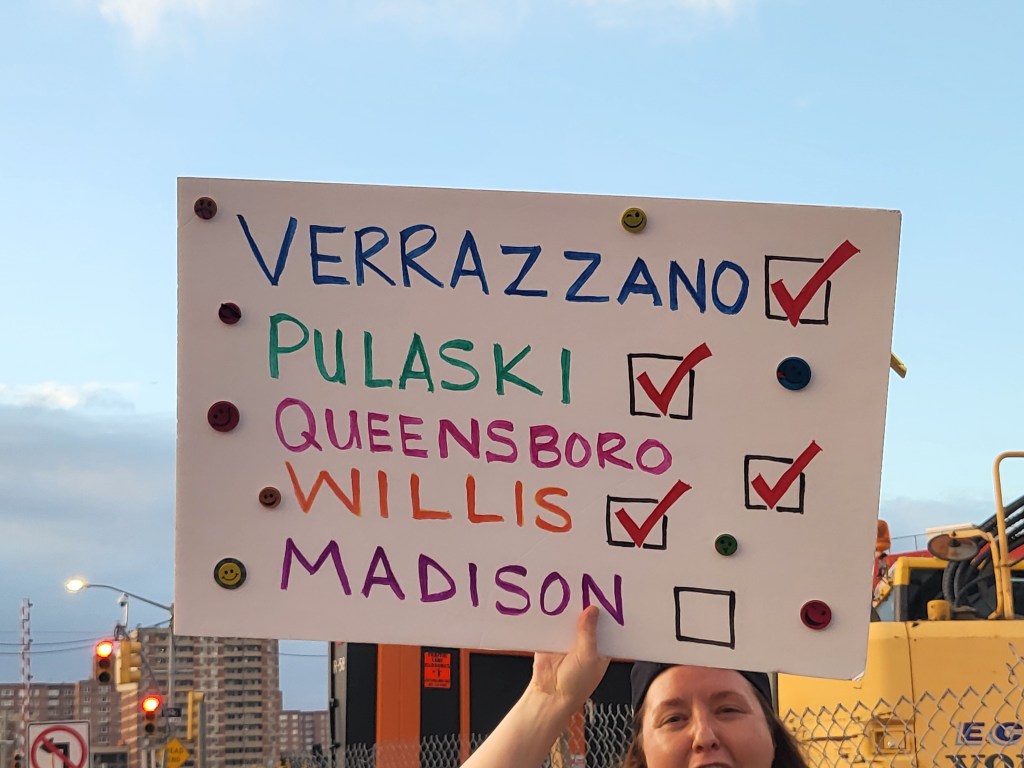 VERRAZZANO
PULASKI
QUEENSBORO
WILLIS
MADISON